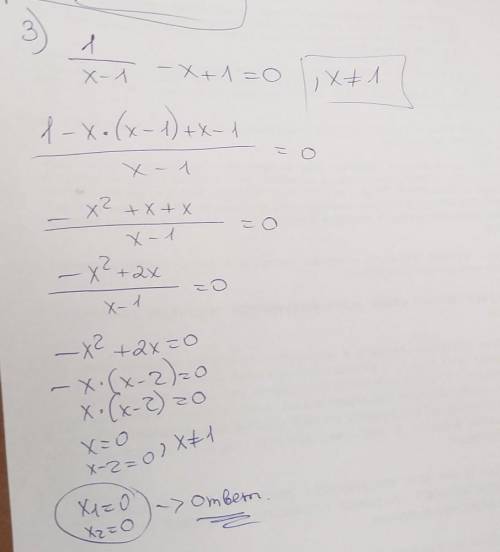 3)
1/(x-1) -x+1=0 , x≠1
(1-x·(x-1)+x-1)/(x-1) =0
(-x²+x+x)/(x-1) =0
(-x²+2x)/(x-1) =0
-x²+2x=0
-x·(x-2)=0
x·(x-2)=0
x=0
x-2=0, x≠1
x₁=0 -> ответ.
x₂=0